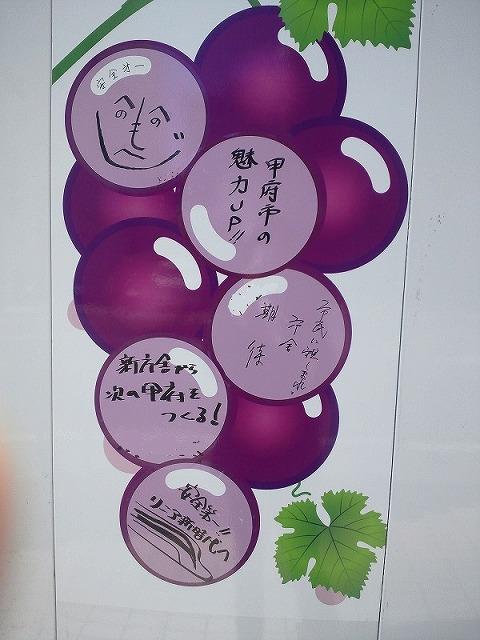 安全オー
へのへのもへじ
甲府市の
魅力UP!!
市民に親しまれ
市会
期待
新庁舎から
次の甲府を
つくる!
安全第一!!
リニア新時代へ